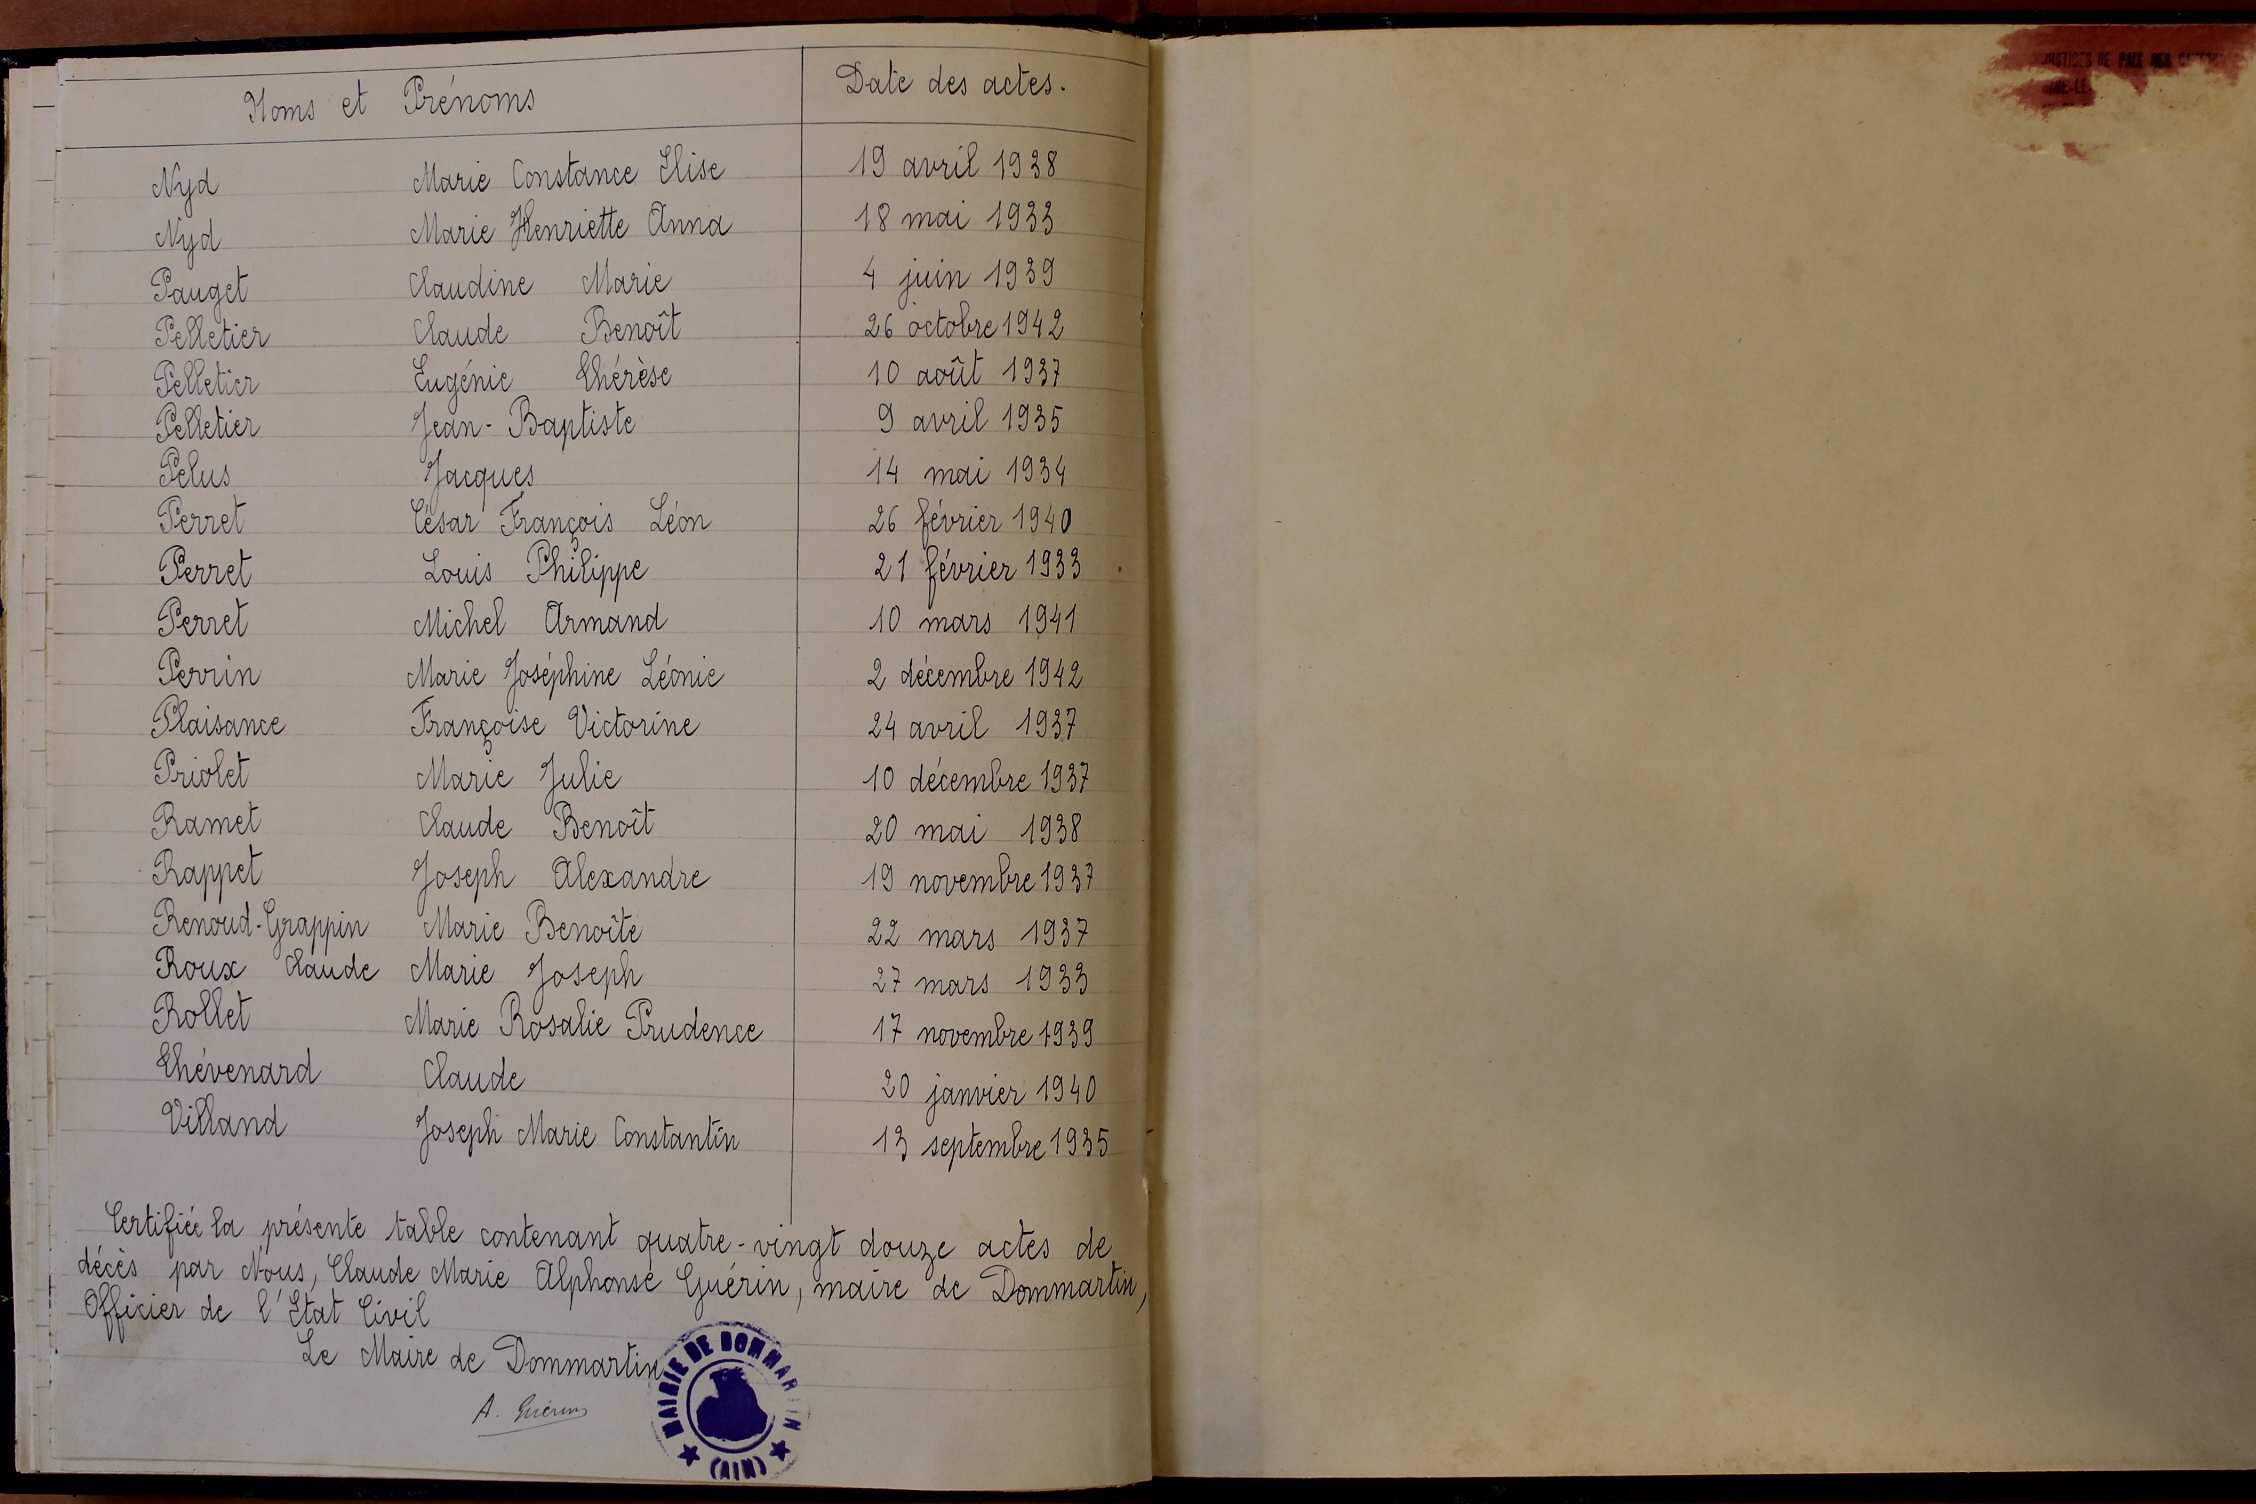 Noms et Prénoms Date des actes.
Nyd Marie Constance Elise 19 avril 1938
Nyd Marie Henriette Anna 18 mai 1933
Pauget Claudine Marie 4 juin 1939
Pelletier Claude Benoît 26 octobre 1942
Pelletier Eugénie Thérèse 10 août 1937
Pelletier Jean-Baptiste 9 avril 1935
Pelus Jacques 14 mai 1934
Perret César François Léon 26 février 1940
Perret Louis Philippe 21 février 1933
Perret Michel Armand 10 mars 1941
Perrin Marie Joséphine Léonie 2 décembre 1942
Plaisance Françoise Victorine 24 avril 1937
Priolet Marie Julie 10 décembre 1937
Ramet Claude Benoît 20 mai 1938
Rappet Joseph Alexandre 19 novembre 1937
Renoud-Grappin Marie Benoîte 22 mars 1937
Roux Claude Marie Joseph 27 mars 1933
Rollet Marie Rosalie Prudence 17 novembre 1939
Thévenard Claude 20 janvier 1940
Villand Joseph Marie Constantin 13 septembre 1935
Certifiée la présente table contenant quatre-vingt douze actes de
décès par Nous, Claude Marie Alphonse Guérin, maire de Dommartin,
Officier de l'Etat Civil
Le Maire de Dommartin
A. Guérin
MAIRIE DE DOMMARTIN
(AIN)
DE PAIX